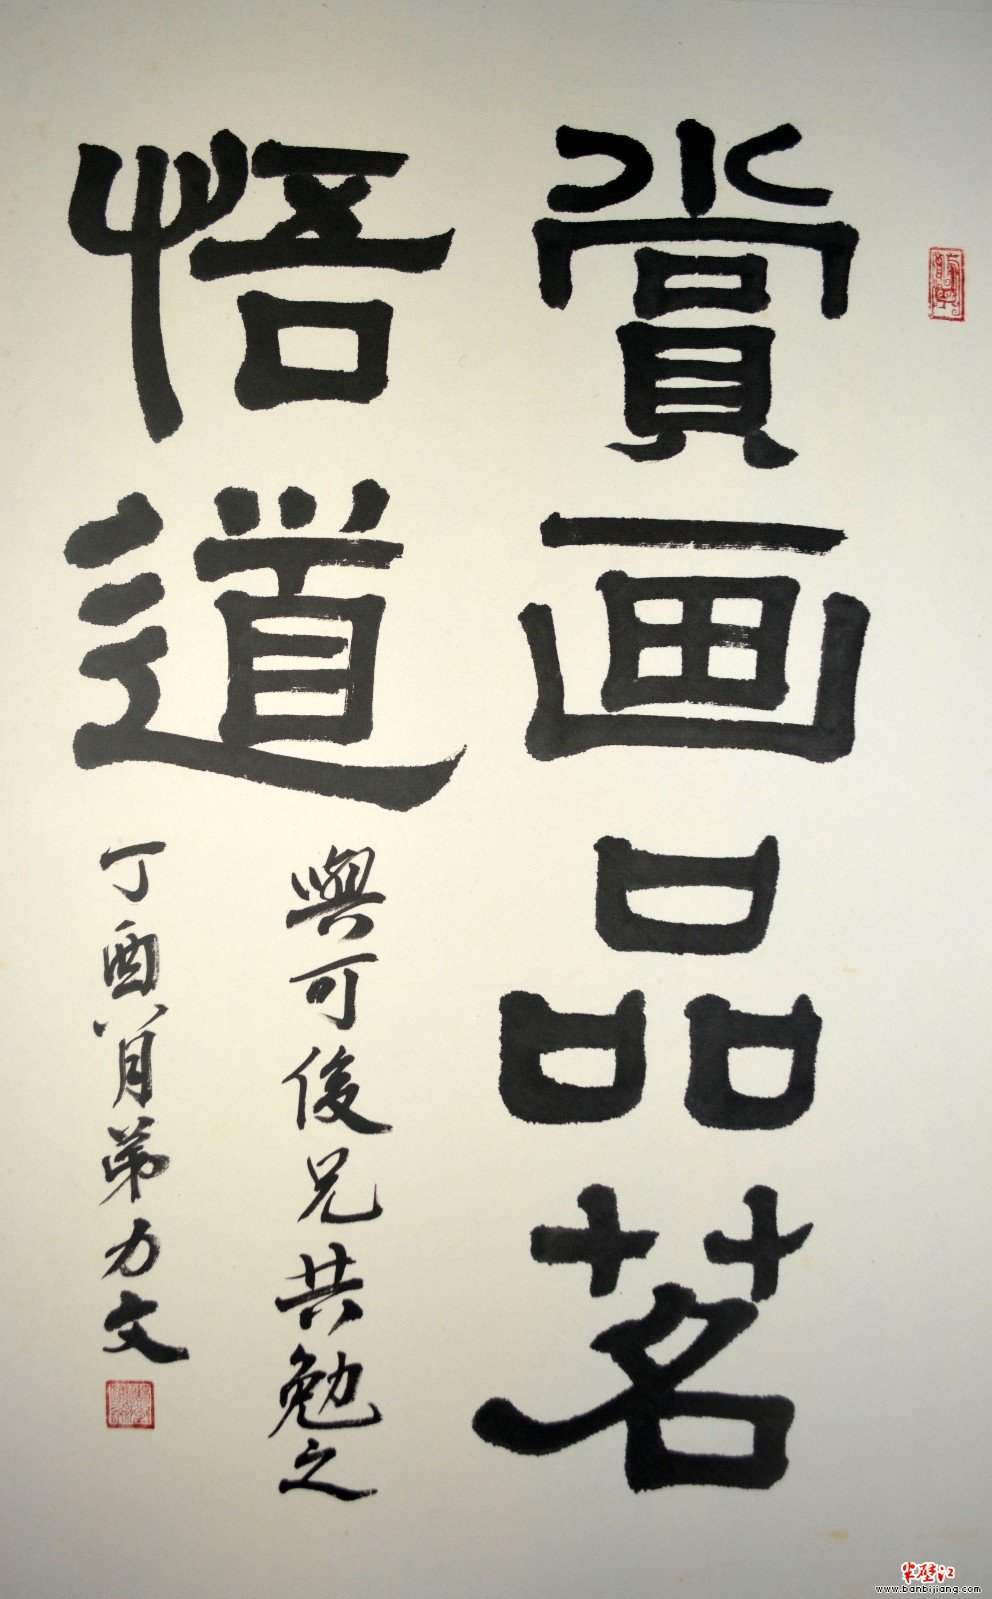 賞画品茗
悟道
與可俊兄共勉之
丁酉八月弟力文
半壁江
www.banbijiang.com